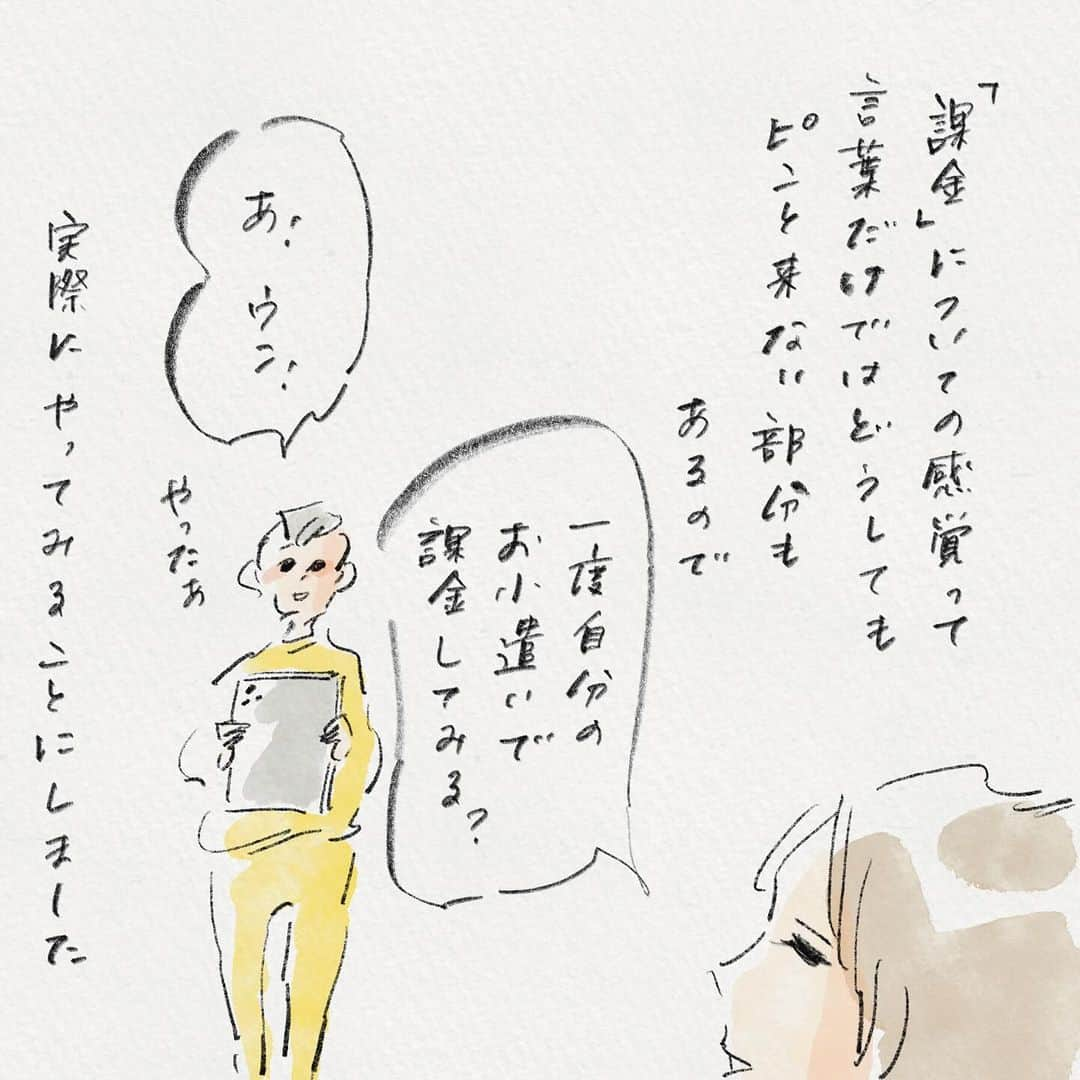 「課金」についての感覚って
言葉だけではどうしても
ピンと来ない部分も
あるので
一度自分の
お小遣いで
課金してみる?
あ!
ウン!
やったぁ
実際にやってみることにしました